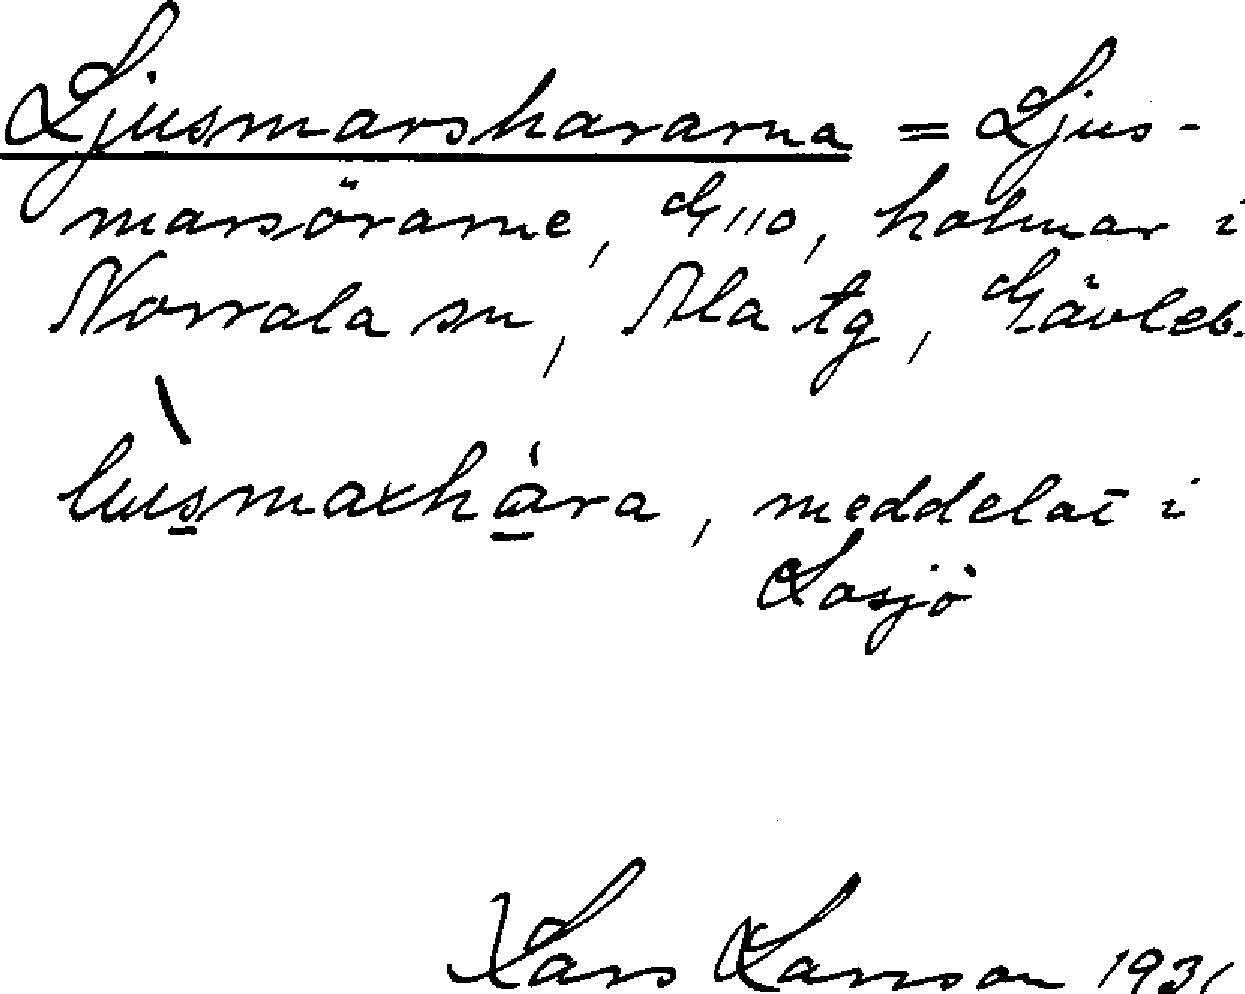 Ljusmarshararna = Ljus-
marsörarne, G110, holmar i
Norrala sn, Ala tg, Gävleb.
meddelat i
Losjö
Lars Larsson 1931